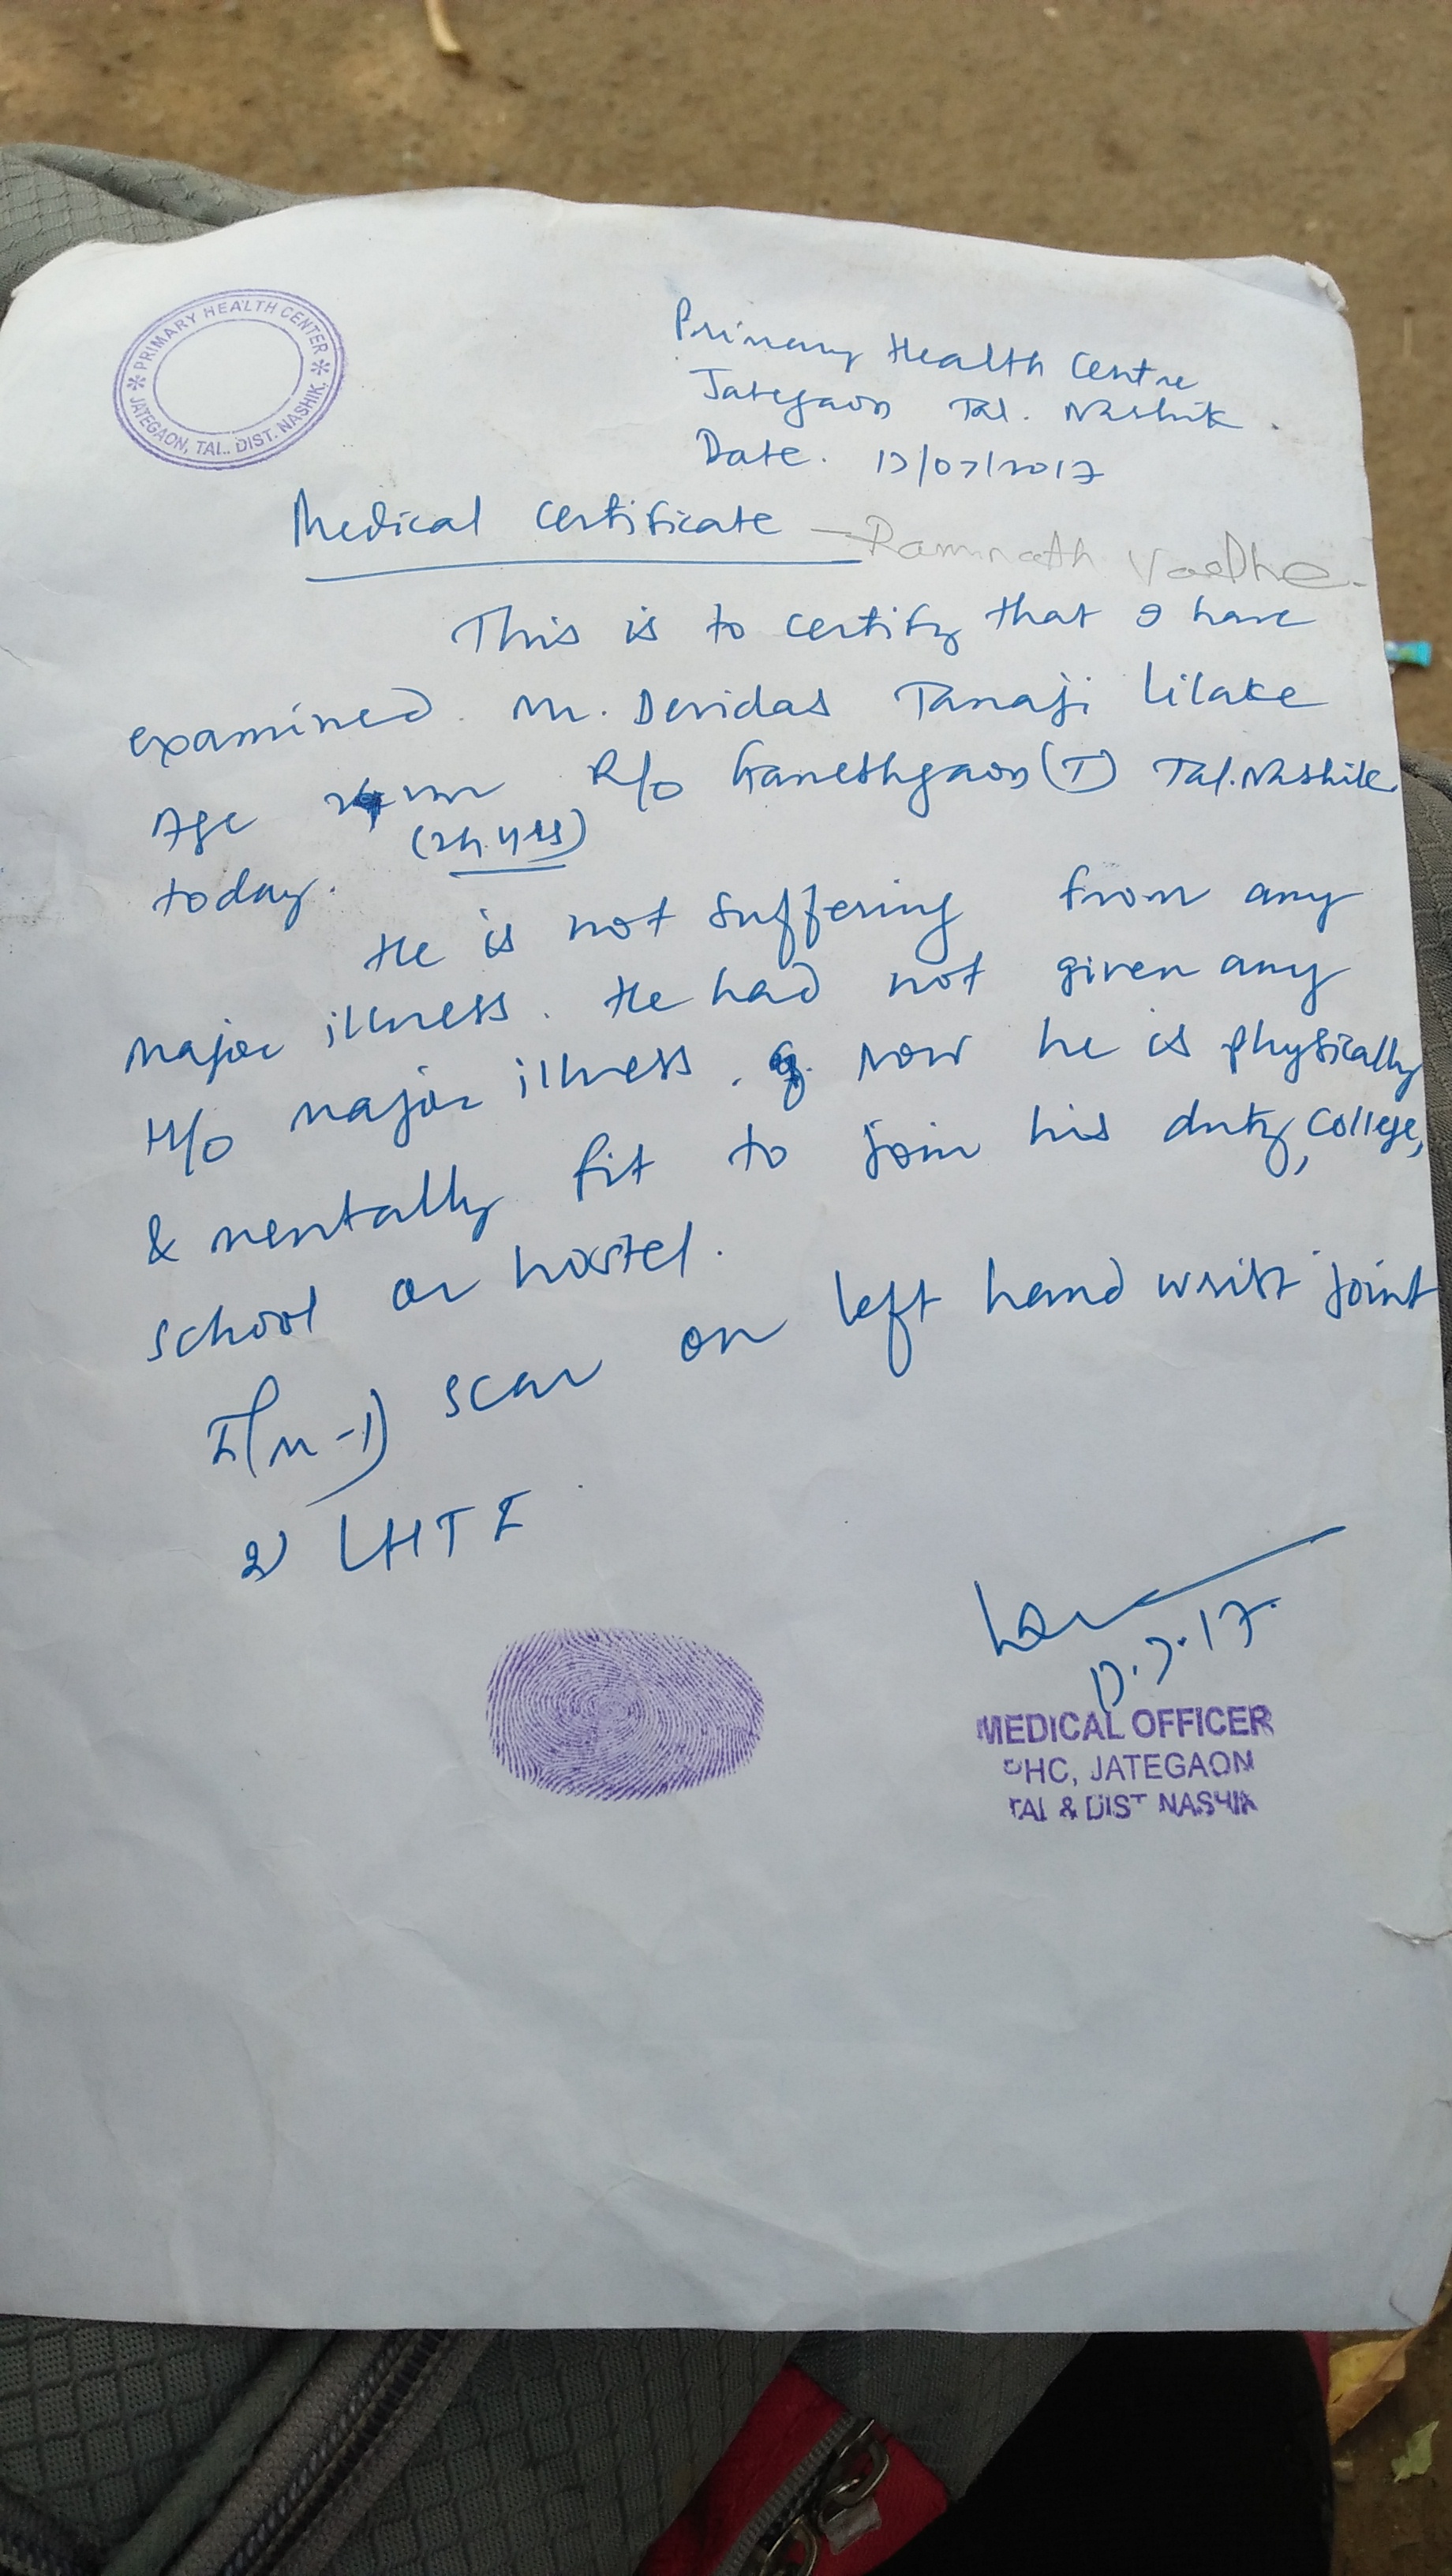 PRIMARY HEALTH CENTER
JATEGAON, TAL. DIST. NASHIK.
Primary Health Centre
Jategaon Tal. Nashik.
Date. 17/07/2017
Medical Certificate - Ramnath
This is to certify that I have
examined. Mr. Devidas Tanaji Lilake
Age R/o Ganeshgaon (T) Tal. Nashik
(24 yrs)
today.
He is not suffering from any
major illness. He had not given any
H/o major illness. Now he is physically
& mentally fit to join his duty, college,
school or hostel.
I(M-1) scar on left hand wrist joint
2) LHTI
17.7.17.
MEDICAL OFFICER
PHC, JATEGAON
TAL & DIST NASHIK